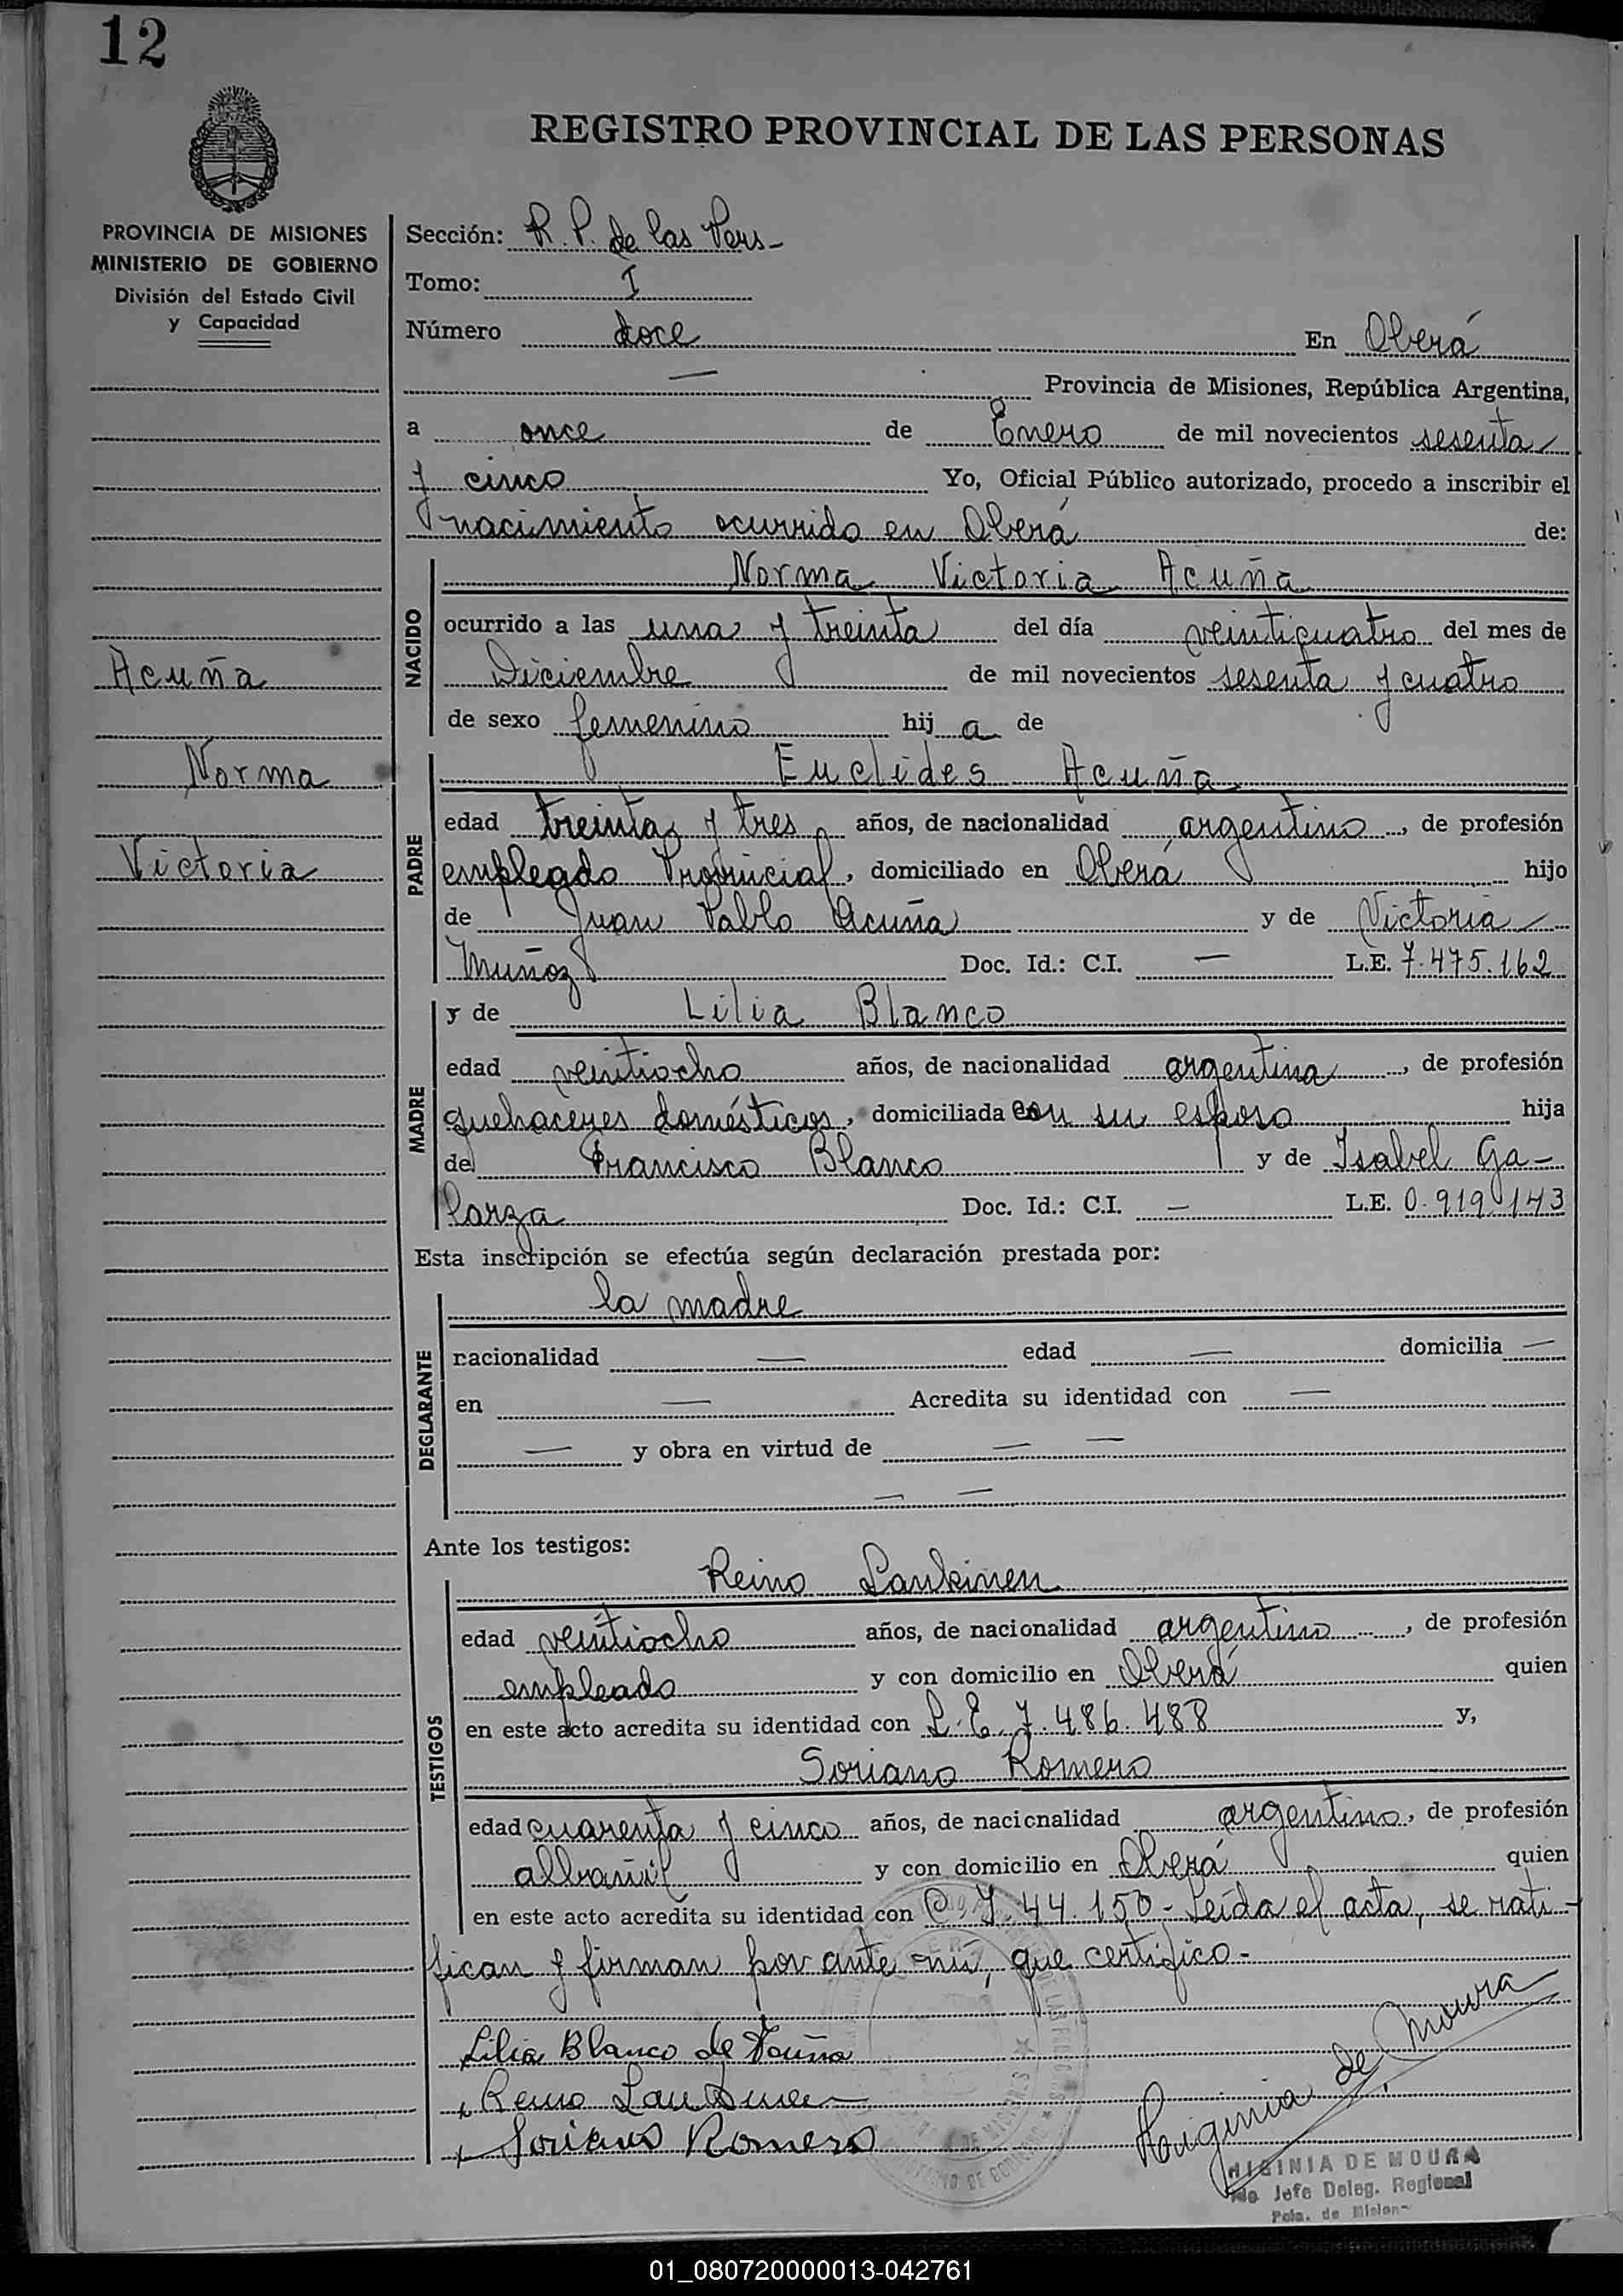 12
REGISTRO PROVINCIAL DE LAS PERSONAS
PROVINCIA DE MISIONES
MINISTERIO DE GOBIERNO
División del Estado Civil
y Capacidad
Sección: R. P. de las Pers-
Tomo: I
Número doce En Oberá
— Provincia de Misiones, República Argentina,
a once de Enero de mil novecientos sesenta
y cinco Yo, Oficial Público autorizado, procedo a inscribir el
nacimiento ocurrido en Oberá de:
NACIDO
Norma Victoria Acuña
ocurrido a las una y treinta del día veinticuatro del mes de
Diciembre de mil novecientos sesenta y cuatro
de sexo femenino hij a de
Acuña
Norma
Victoria
PADRE
Euclides Acuña
edad treinta y tres años, de nacionalidad argentino, de profesión
empleado Provincial, domiciliado en Oberá hijo
de Juan Pablo Acuña y de Victoria
Muñoz Doc. Id.: C.I. — L.E. 7.475.162
MADRE
y de Lilia Blanco
edad veintiocho años, de nacionalidad argentina, de profesión
quehaceres domésticos, domiciliada con su esposo hija
de Francisco Blanco y de Isabel Ga-
larza Doc. Id.: C.I. — L.E. 0.919.143
Esta inscripción se efectúa según declaración prestada por:
DECLARANTE
la madre
nacionalidad — edad — domicilia —
en — Acredita su identidad con —
— y obra en virtud de — —
— —
Ante los testigos:
TESTIGOS
Reino Lankinen
edad veintiocho años, de nacionalidad argentino, de profesión
empleado y con domicilio en Oberá quien
en este acto acredita su identidad con L.E. 7.486.488 y,
Soriano Romero
edad cuarenta y cinco años, de nacionalidad argentino, de profesión
albañil y con domicilio en Oberá quien
en este acto acredita su identidad con 44.150- Leída el acta, se rati-
fican y firman por ante mí, que certifico-
Lilia Blanco de Acuña
x Reino Lankinen
x Soriano Romero
Higinia de Moura
HIGINIA DE MOURA
Jefe Deleg. Regional
Pcia. de Mision
01_080720000013-042761